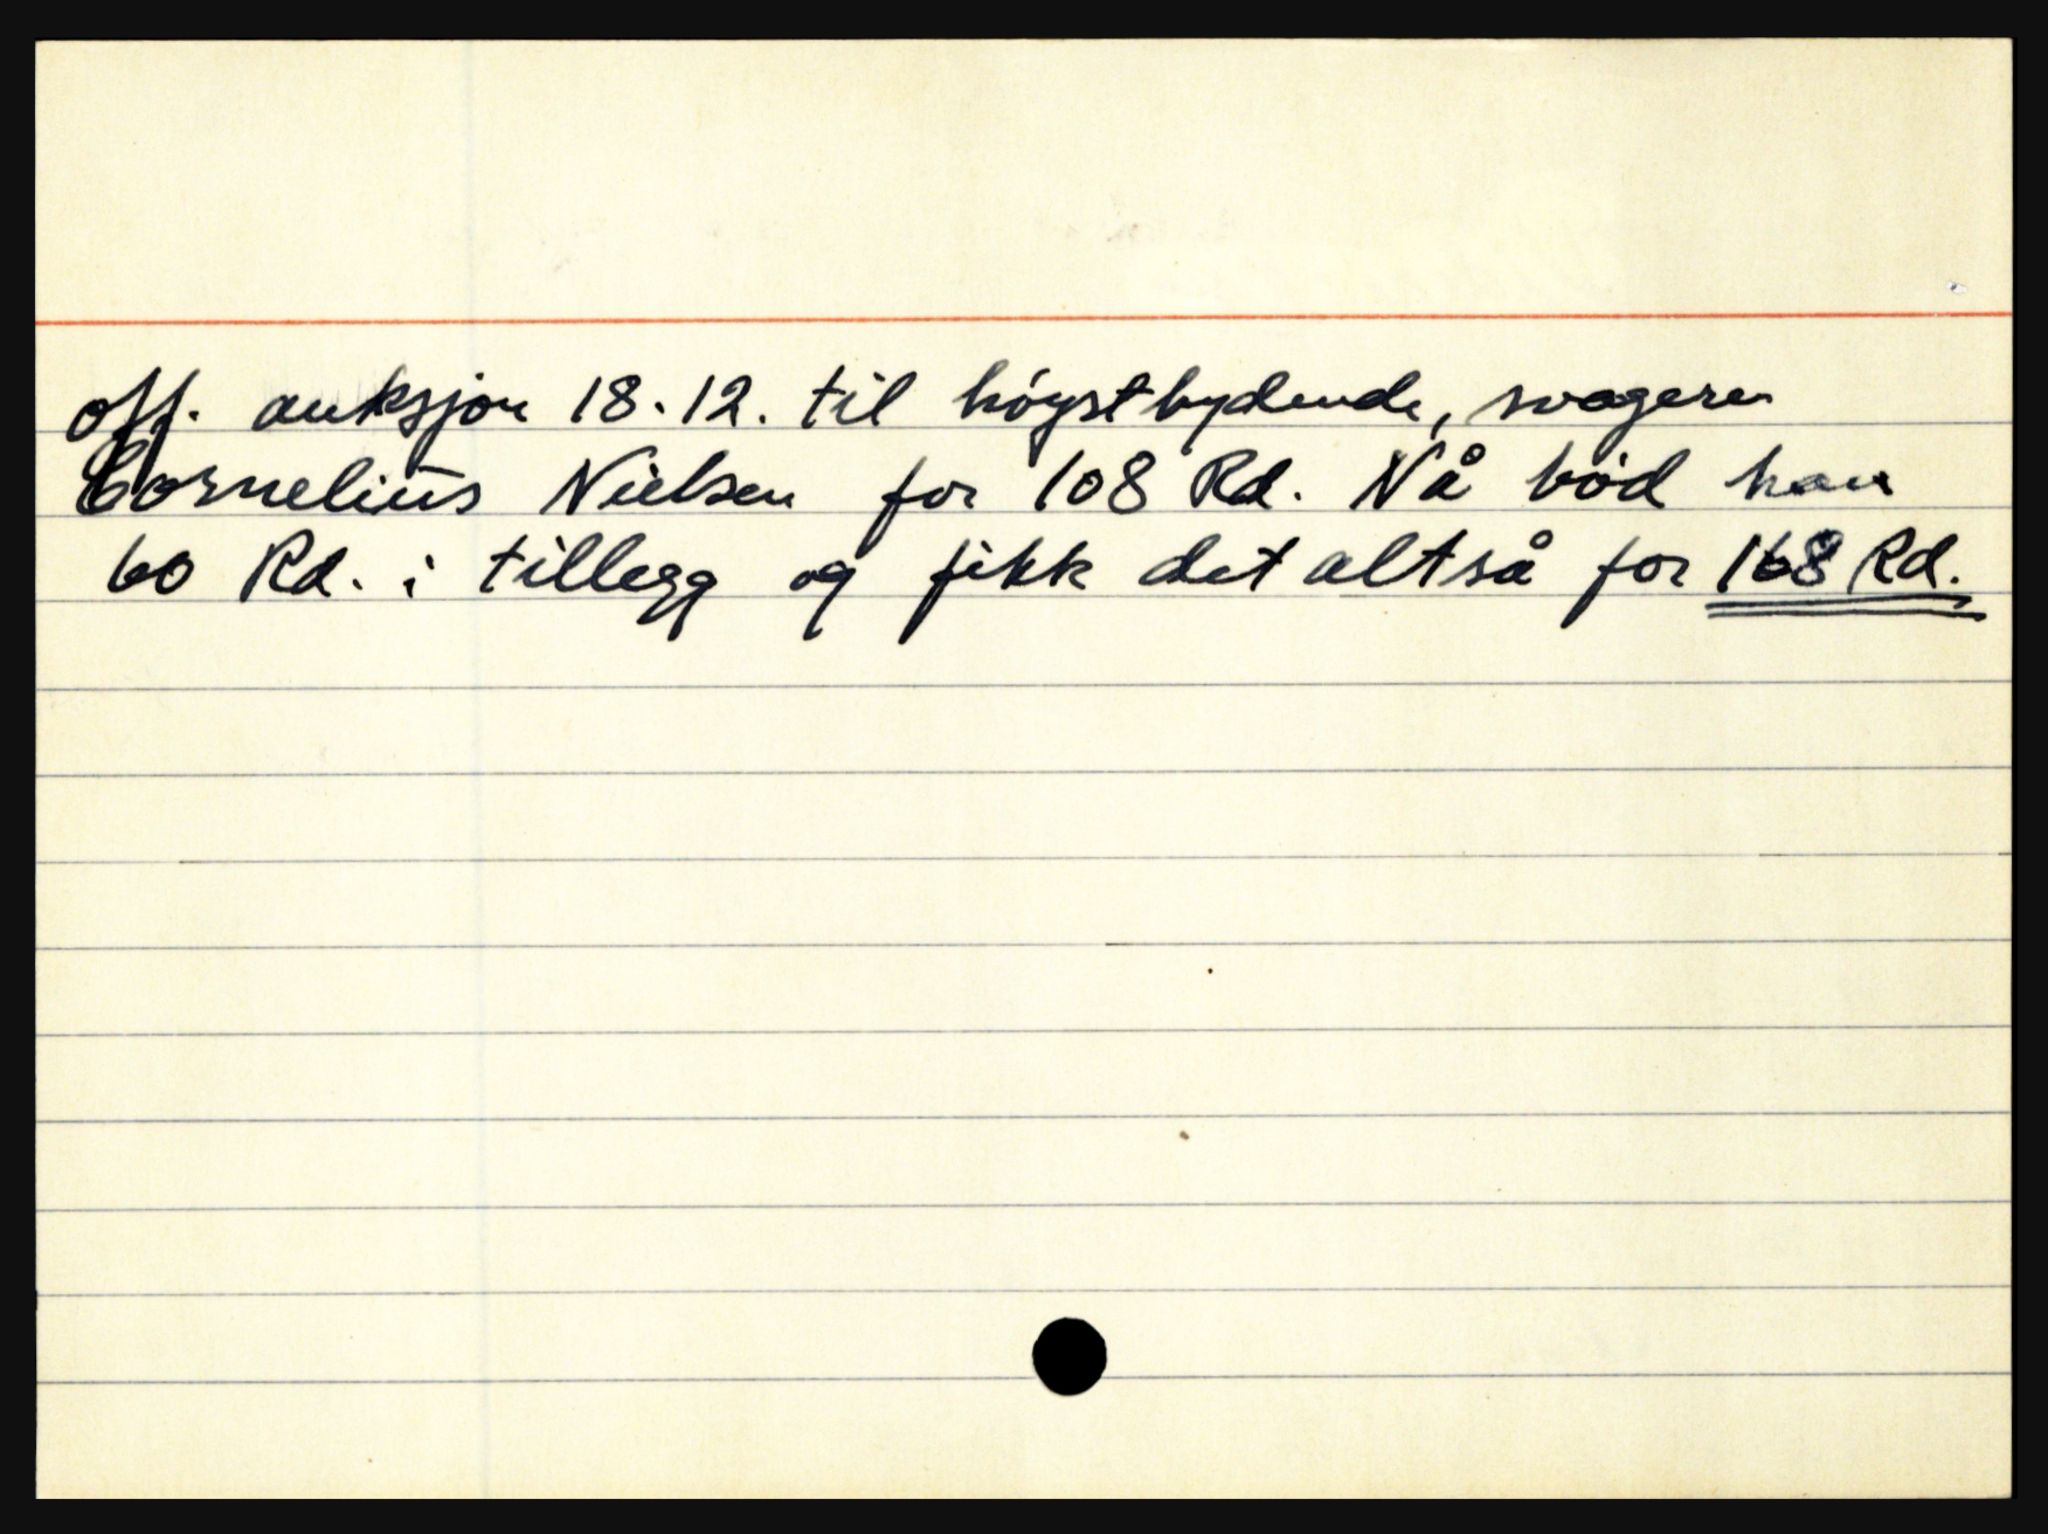 off. auksjon 18.12. til höystbydende, svogeren
Cornelius Nielsen for 108 Rd. Nå böd han
60 Rd. i tillegg og fikk det altså for 168 Rd.